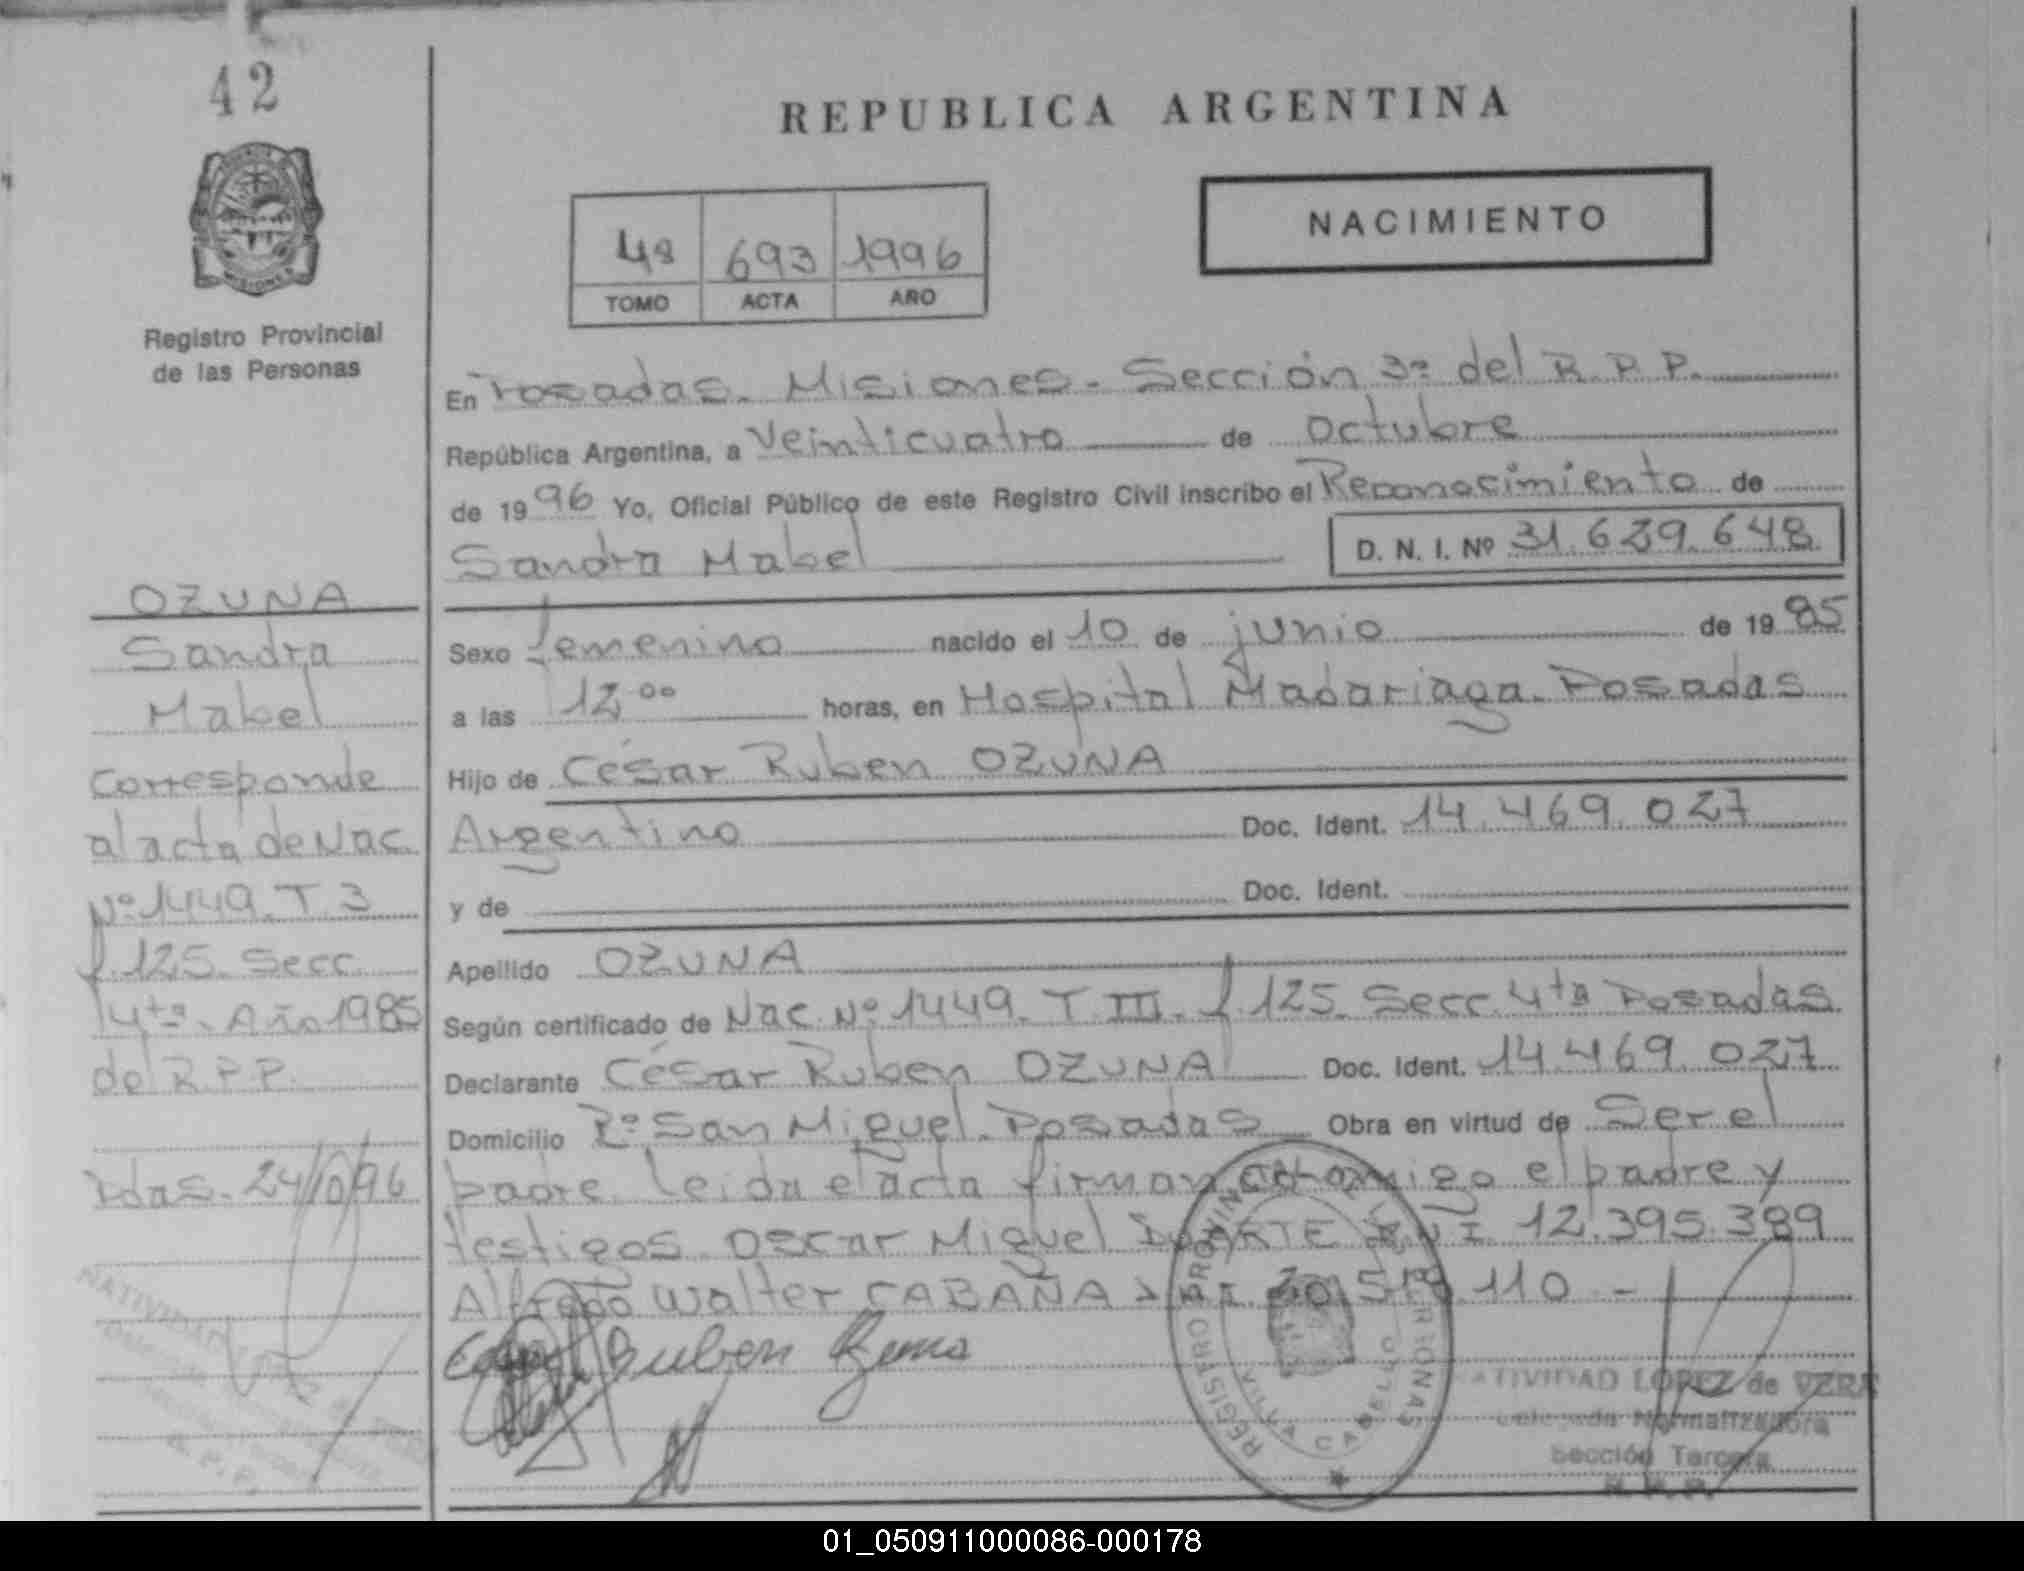 42
REPUBLICA ARGENTINA
NACIMIENTO
48 693 1996
TOMO ACTA AÑO
MISIONES
Registro Provincial
de las Personas
En Posadas. Misiones - Sección 3ª del R.P.P.
República Argentina, a Veinticuatro de Octubre
de 1996 Yo, Oficial Público de este Registro Civil inscribo el Reconocimiento de
Sandra Mabel D. N. I. Nº 31.629.648
OZUNA
Sandra
Mabel
Corresponde
al acta de Nac.
Nº 1449. T. 3
f. 125. Secc.
4ta. Año 1985
del R.P.P.
Pdas. 24/10/96
Sexo femenino nacido el 10 de junio de 1985
a las 12 00 horas, en Hospital Madariaga. Posadas
Hijo de César Ruben OZUNA
Argentino Doc. Ident. 14.469.027
y de Doc. Ident.
Apellido OZUNA
Según certificado de Nac. Nº 1449. T. III. f. 125. Secc. 4ta Posadas
Declarante César Ruben OZUNA Doc. Ident. 14.469.027
Domicilio Bº San Miguel. Posadas Obra en virtud de Ser el
padre. Leida el acta firman conmigo el padre y
testigos Oscar Miguel DUARTE D.N.I. 12.395.389
Alfredo Walter CABAÑA 110 -
Ruben
REGISTRO PROVINCIAL DE LAS PERSONAS
VILLA CABELLO
NATIVIDAD LOPEZ de VERA
Delegada Normalizadora
Sección Tercera
R. P. P.
NATIVIDAD LOPEZ de VERA
Delegada Normalizadora
R. P. P.
01_050911000086-000178